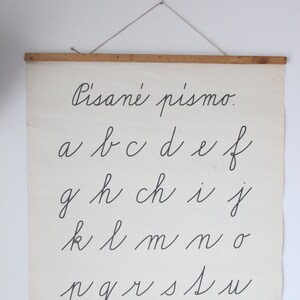 Písané písmo.
a b c d e f
g h ch i j
k l m n o
p q r s t u